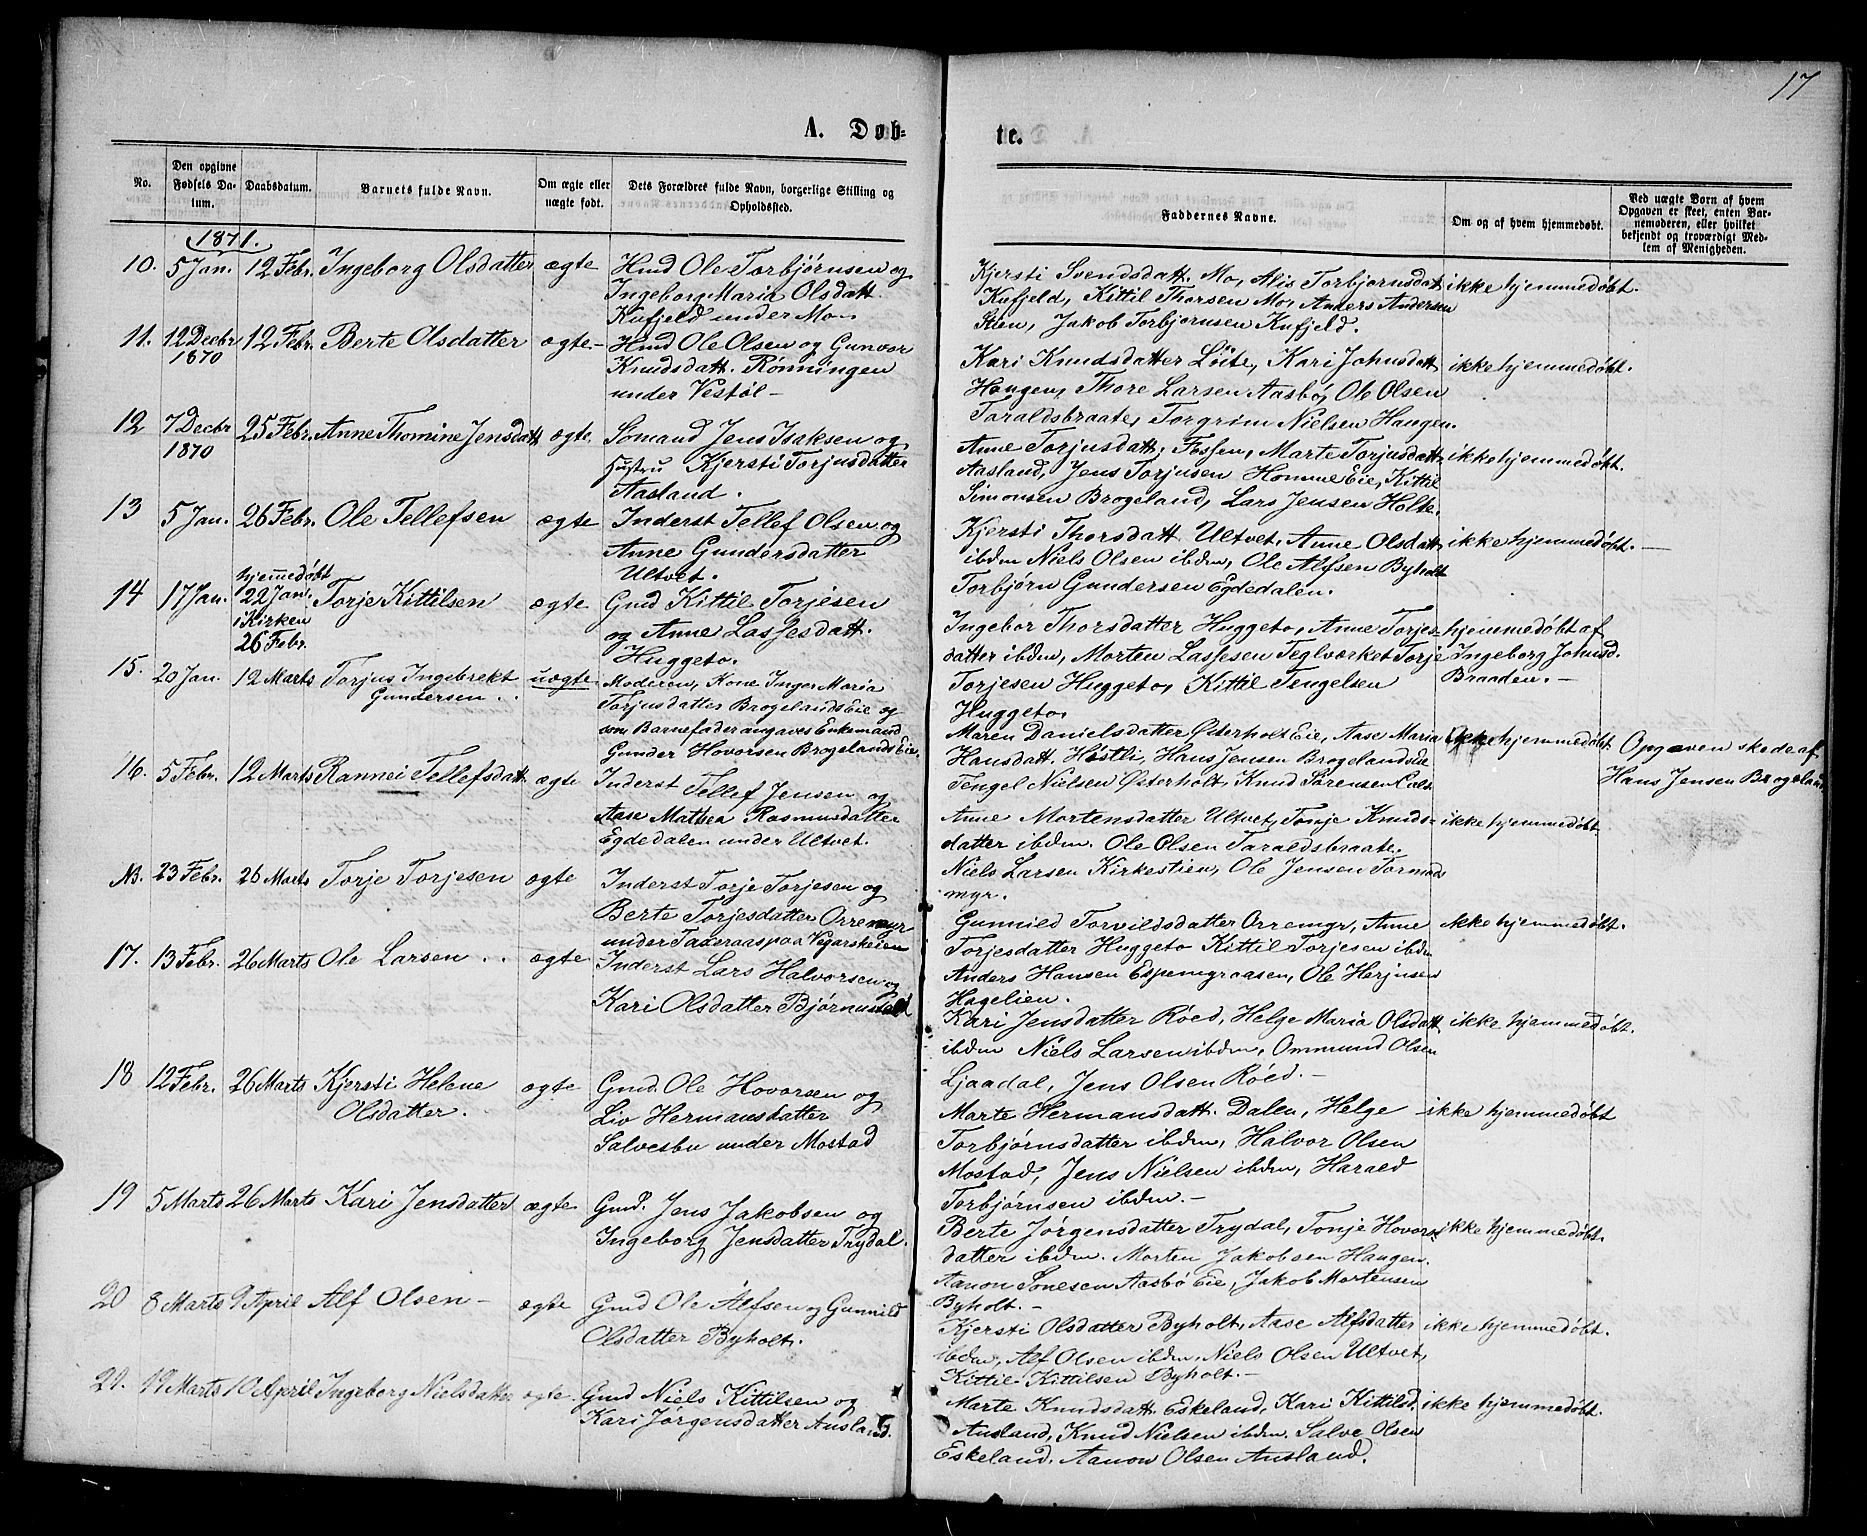 17
A. Døb-
te.
No.
Den opgivne Fødsels Da-tum.
Daabsdatum.
Barnets fulde Navn.
Om ægte eller uægte født.
Dets Forældres fulde Navn, borgerlige Stilling og Opholdssted.
Faddernes Navne.
Om og af hvem hjemmedøbt.
Ved uægte Børn af hvem Opgaven er skeet, enten Bar-nemoderen, eller hvilket bekjendt og troværdigt Med-lem af Menigheden.
1871.
10. 5 Jan. 12 Febr. Ingeborg Olsdatter ægte Hmd Ole Torbjørnsen og
Ingeborg Maria Olsdatt.
Kufjeld under Mo.
Kjersti Svendsdatt. Mo, Alis Torbjørnsdatt ikke hjemmedøbt.
Kufjeld, Kittil Thorsen Mo, Anders Andersen
Stien, Jakob Torbjørnsen Kufjeld.
11. 12 Decbr 1870 12 Febr. Berte Olsdatter ægte - Hmd Ole Olsen og Gunvor
Knudsdatt. Rønningen
under Vestøl -
Kari Knudsdatter Løite, Kari Johnsdatt ikke hjemmedøbt.
Haugen, Thore Larsen Aasbø, Ole Olsen
Taraldsbraate, Torgrim Nielsen Haugen.
12 7 Decbr 1870 25 Febr. Anne Thomine Jensdatt ægte Sømand Jens Isaksen og
Hustru Kjersti Torjusdatter
Aasland.
Anne Torjusdatt, Fossen, Marte Torjusdatt ikke hjemmedøbt.
Aasland, Jens Torjusen Homme Eie, Kittil
Simonsen Brogeland, Lars Jensen Holte.
13 5 Jan. 26 Febr. Ole Tellefsen ægte Inderst Tellef Olsen og
Anne Gundersdatter
Ultvet.
Kjersti Thorsdatt. Ultvet, Anne Olsdatt ikke hjemmedøbt. -
ibdm Niels Olsen ibdm, Ole Alfsen Byholt
Torbjørn Gundersen Egdedalen.
14 17 Jan. hjemmedøbt
22 Jan.
i Kirken
26 Febr. Torje Kittilsen ægte Gmd Kittil Torjesen
og Anne Lassesdatt.
Huggeto.
Ingebor Thorsdatter Huggeto, Anne Torjes- hjemmedøbt af
datter ibdm, Morten Lassesen Teglværket Torje Ingeborg Johnsd.
Torjesen Huggeto, Kittil Tengelsen Braaden. -
Huggeto,
15. 20 Jan. 12 Marts Torjus Ingebrekt
Gundersen uægte. Moderen, Kone Inger Maria
Torjusdatter Brogelands Eie og
som Barnefader angaves Enkemand
Gunder Hovorsen Brogelands Eie.
Maren Danielsdatter Østerholt Eie, Aase Maria Ikke hjemmedøbt Opgaven skede af
Hansdatt. Høstli, Hans Jensen Brogelandseie Hans Jensen Brogeland
Tengel Nielsen Østerholt, Knud Sørensen
16. 5 Febr. 12 Marts Rannei Tellefsdatt. ægte Inderst Tellef Jensen og
Aase Mathea Rasmusdatter
Egdedalen under Ultvet.
Anne Mortensdatter Ultvet, Tonje Knuds- ikke hjemmedøbt
datter ibdm. Ole Olsen Taraldsbraate,
Niels Larsen Kirkestien, Ole Jensen Tormods
myr.
NB. 23 Febr. 26 Marts Torje Torjesen ægte Inderst Torje Torjesen og
Berte Torjesdatter Orremyr
under Taxeraaspaa Vegarsheien
Gunnild Torvildsdatter Orremyr, Anne ikke hjemmedøbt.
Torjesdatter Huggeto Kittil Torjesen ibdm
Anders Hansen Espemyraasen, Ole Herjusen
Hagelien.
17. 13 Febr. 26 Marts Ole Larsen ægte Inderst Lars Halvorsen og
Kari Olsdatter Bjørnustad
Kari Jensdatter Røed, Helge Maria Olsdatt. ikke hjemmedøbt.
ibdm Niels Larsen ibdm, Ommund Olsen
Ljaadal, Jens Olsen Røed. -
18 12 Febr. 26 Marts Kjersti Helene
Olsdatter. ægte Gmd. Ole Hovorsen og
Liv Hermansdatter
Salvesbu under Mostad
Marte Hermansdatt. Dalen, Helge ikke hjemmedøbt
Torbjørnsdatter ibdm, Halvor Olsen
Mostad, Jens Nielsen ibdm, Harald
Torbjørnsen ibdm. -
19 5 Marts 26 Marts Kari Jensdatter ægte Gmd. Jens Jakobsen og
Ingeborg Jensdatter Trydal.
Berte Jørgensdatter Trydal, Tonje Hovors ikke hjemmedøbt.
datter ibdm. Morten Jakobsen Haugen.
Aanon Sonesen Aasbø Eie, Jakob Mortensen
Byholt. -
20 8 Marts 9 April Alf Olsen - ægte Gmd Ole Alfsen og Gunnild
Olsdatter Byholt.
Kjersti Olsdatter Byholt, Aase Alfsdatter ikke hjemmedøbt.
ibdm, Alf Olsen ibdm, Niels Olsen Ultvet,
Kittil Kittilsen Byholt. -
21. 19 Marts 10 April Ingeborg Nielsdatter ægte. Gmd Niels Kittilsen og
Kari Jørgensdatter Ausland.
Marte Knudsdatt. Eskeland, Kari Kittilsd. ikke hjemmedøbt.
Ausland, Knud Nielsen ibdm. Salve Olsen
Eskeland, Aanon Olsen Ausland.